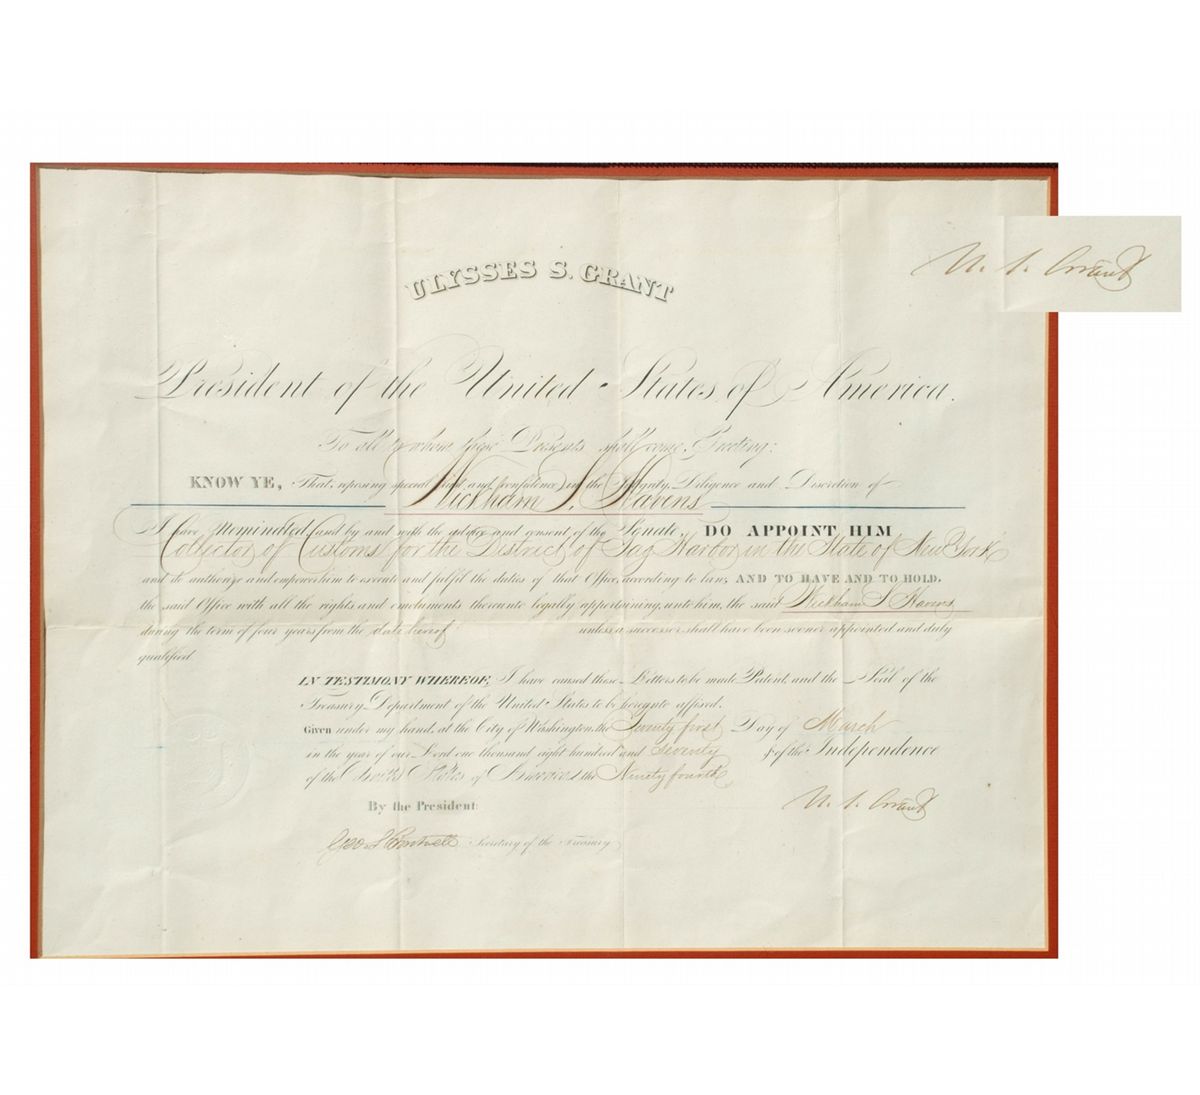 ULYSSES S. GRANT
U. S. Grant
President of the United States of America.
To all to whom these Presents shall come, Greeting:
KNOW YE, That, reposing special trust and confidence in the Integrity, Diligence and Discretion of
Wickham S. Havens
I have Nominated and by and with the advice and consent of the Senate, DO APPOINT HIM
Collector of Customs for the District of Sag Harbor in the State of New York
and do authorize and empower him to execute and fulfil the duties of that Office, according to law; AND TO HAVE AND TO HOLD,
the said Office with all the rights and emoluments thereunto legally appertaining, unto him, the said Wickham S Havens
during the term of four years from the date hereof unless a successor shall have been sooner appointed and duly
qualified.
IN TESTIMONY WHEREOF, I have caused these Letters to be made Patent, and the Seal of the
Treasury Department of the United States to be hereunto affixed.
Given under my hand, at the City of Washington, the Twenty first Day of March
in the year of our Lord one thousand eight hundred and Seventy & of the Independence
of the United States of America the Ninety fourth
By the President:
U. S. Grant
Geo. S. Boutwell Secretary of the Treasury